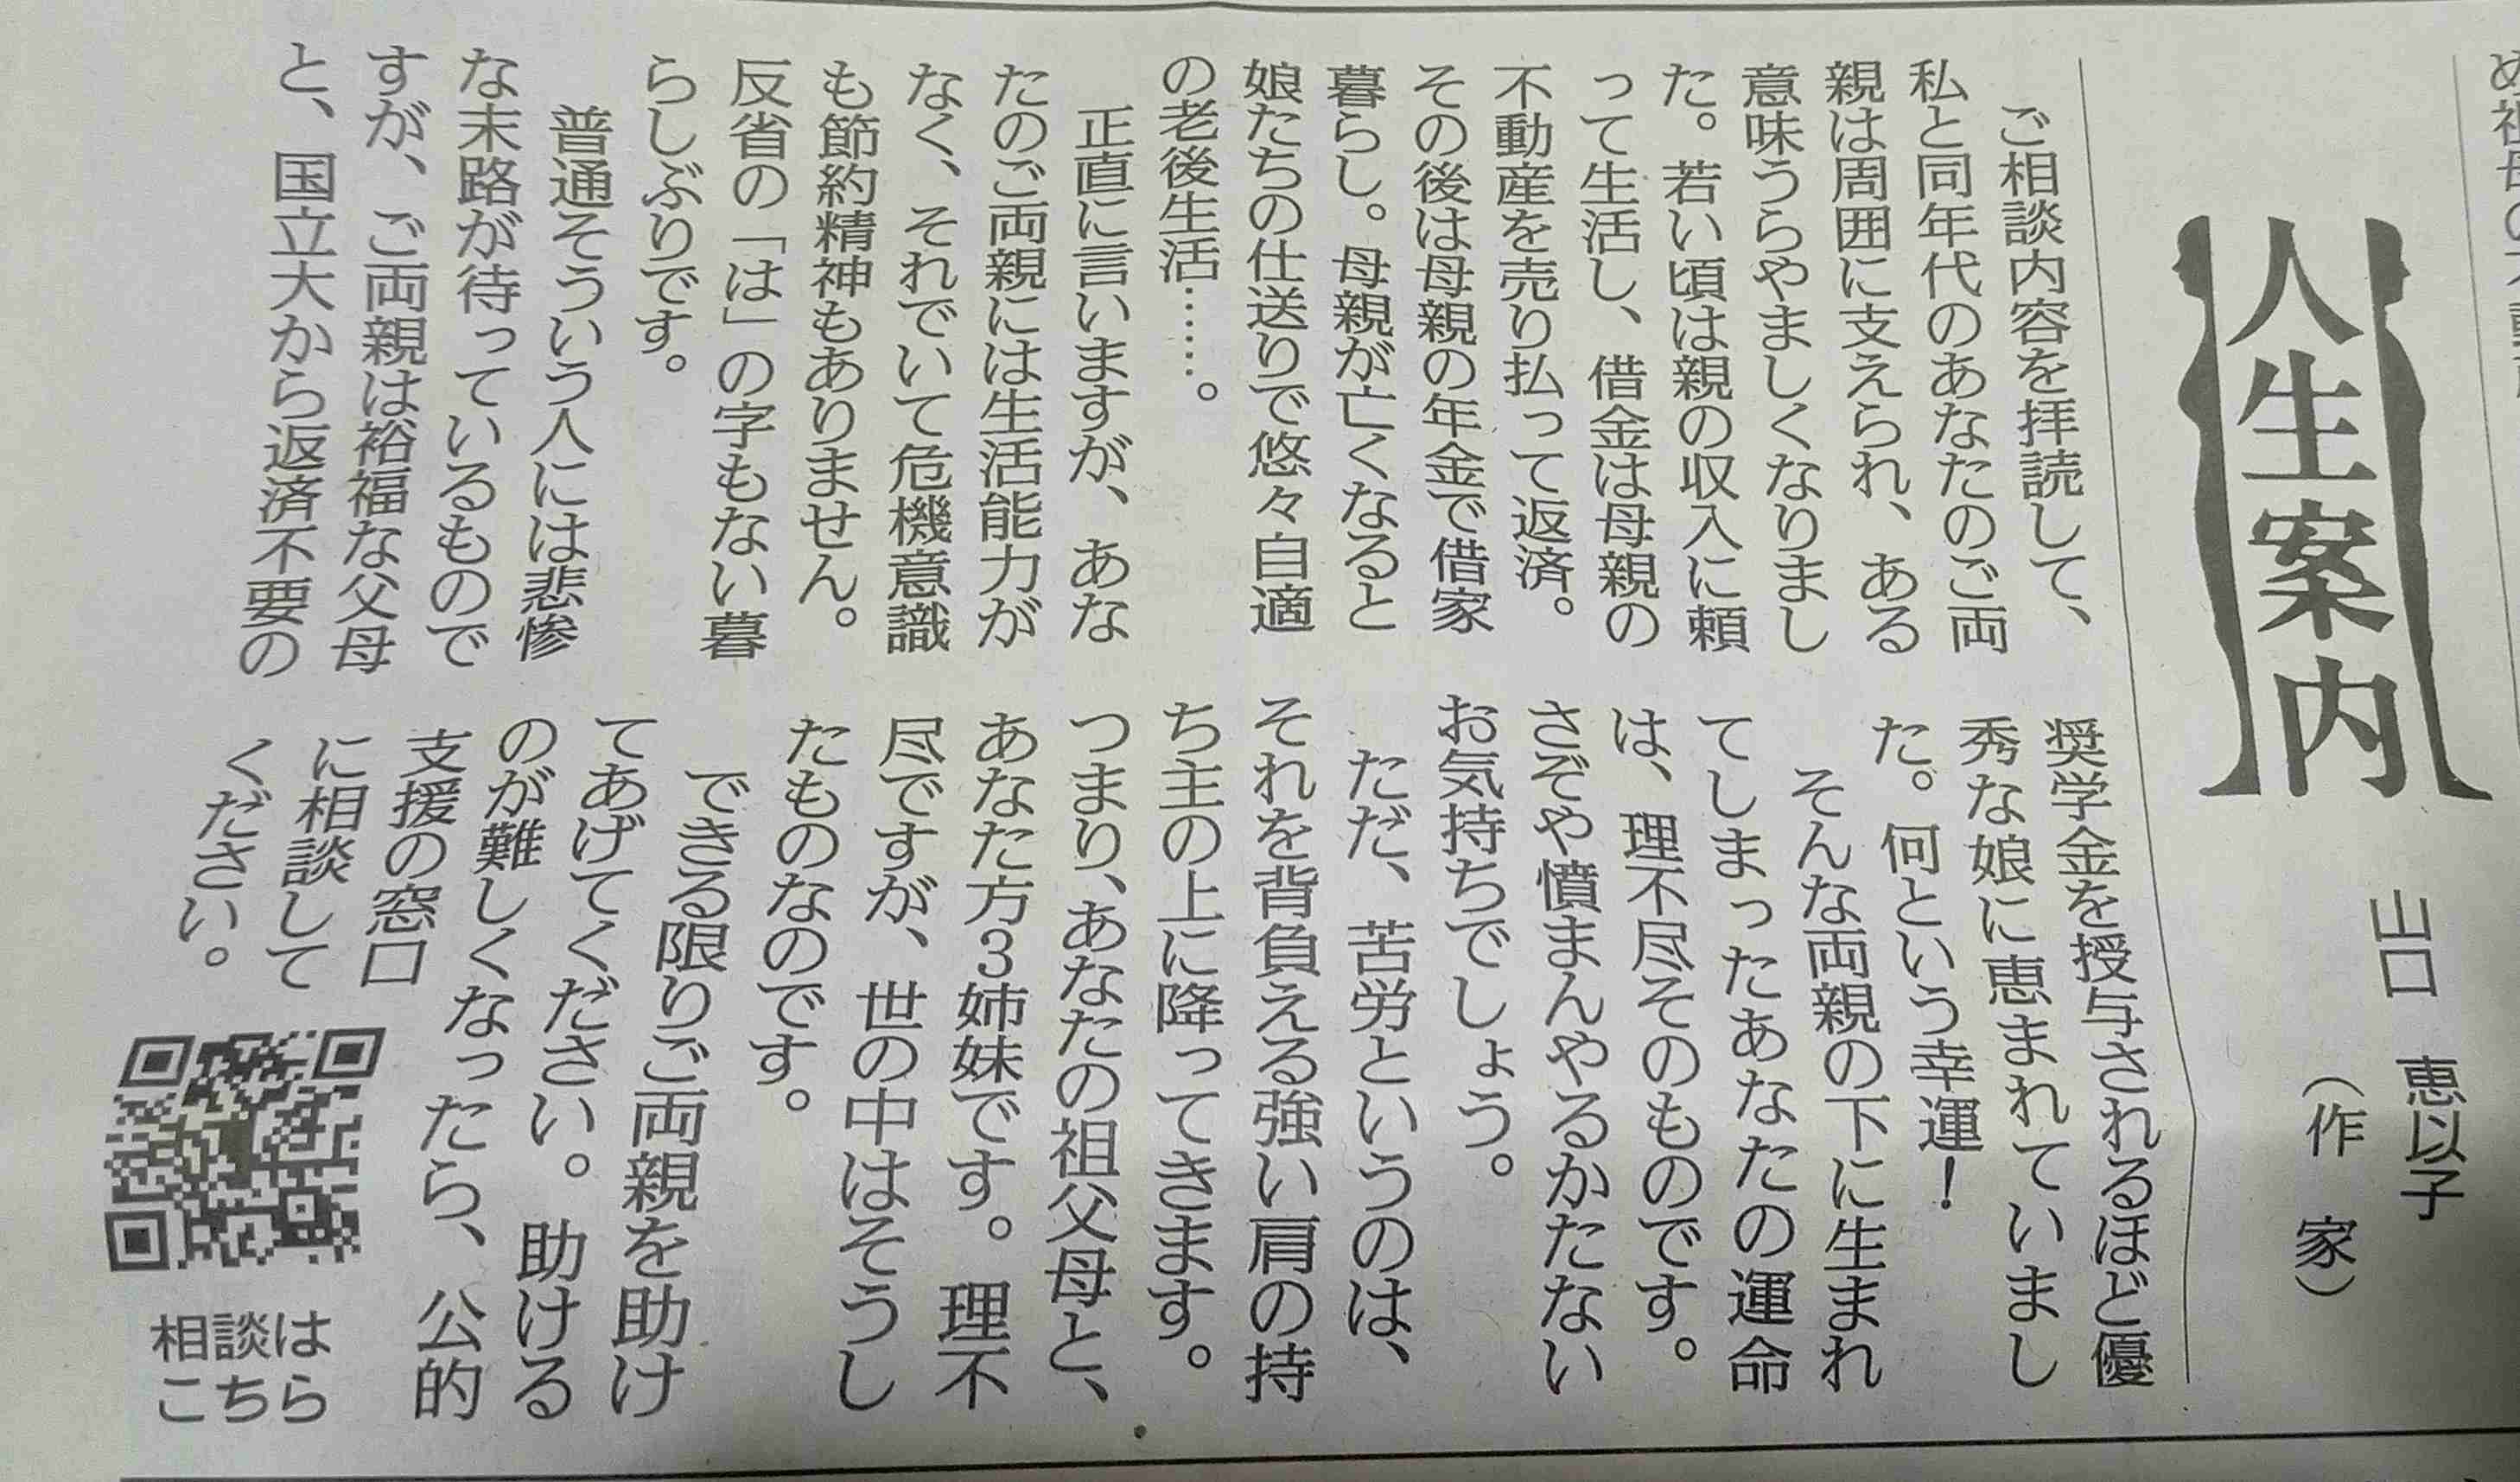 人生案内
山口 恵以子
(作 家)
ご相談内容を拝読して、
私と同年代のあなたのご両
親は周囲に支えられ、ある
意味うらやましくなりまし
た。若い頃は親の収入に頼
って生活し、借金は母親の
不動産を売り払って返済。
その後は母親の年金で借家
暮らし。母親が亡くなると
娘たちの仕送りで悠々自適
の老後生活……。
正直に言いますが、あな
たのご両親には生活能力が
なく、それでいて危機意識
も節約精神もありません。
反省の「は」の字もない暮
らしぶりです。
普通そういう人には悲惨
な末路が待っているもので
すが、ご両親は裕福な父母
と、国立大から返済不要の
奨学金を授与されるほど優
秀な娘に恵まれていまし
た。何という幸運!
そんな両親の下に生まれ
てしまったあなたの運命
は、理不尽そのものです。
さぞや憤まんやるかたない
お気持ちでしょう。
ただ、苦労というのは、
それを背負える強い肩の持
ち主の上に降ってきます。
つまり、あなたの祖父母と、
あなた方3姉妹です。理不
尽ですが、世の中はそうし
たものなのです。
できる限りご両親を助け
てあげてください。助ける
のが難しくなったら、公的
支援の窓口
に相談して
ください。
相談は
こちら